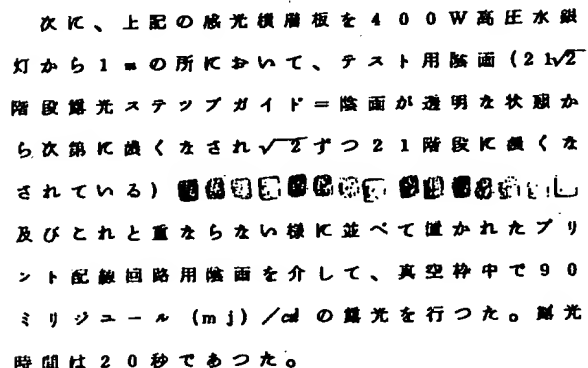 次に、上記の感光積層板を400W高圧水銀
灯から1mの所において、テスト用陰画(21√2
階段露光ステップガイド=陰画が透明な状態か
ら次第に濃くなされ√2ずつ21階段に濃くな
されている)
及びこれと重ならない様に並べて置かれたプリ
ント配線回路用陰画を介して、真空枠中で90
ミリジユール(mj)/cm²の露光を行つた。露光
時間は20秒であつた。